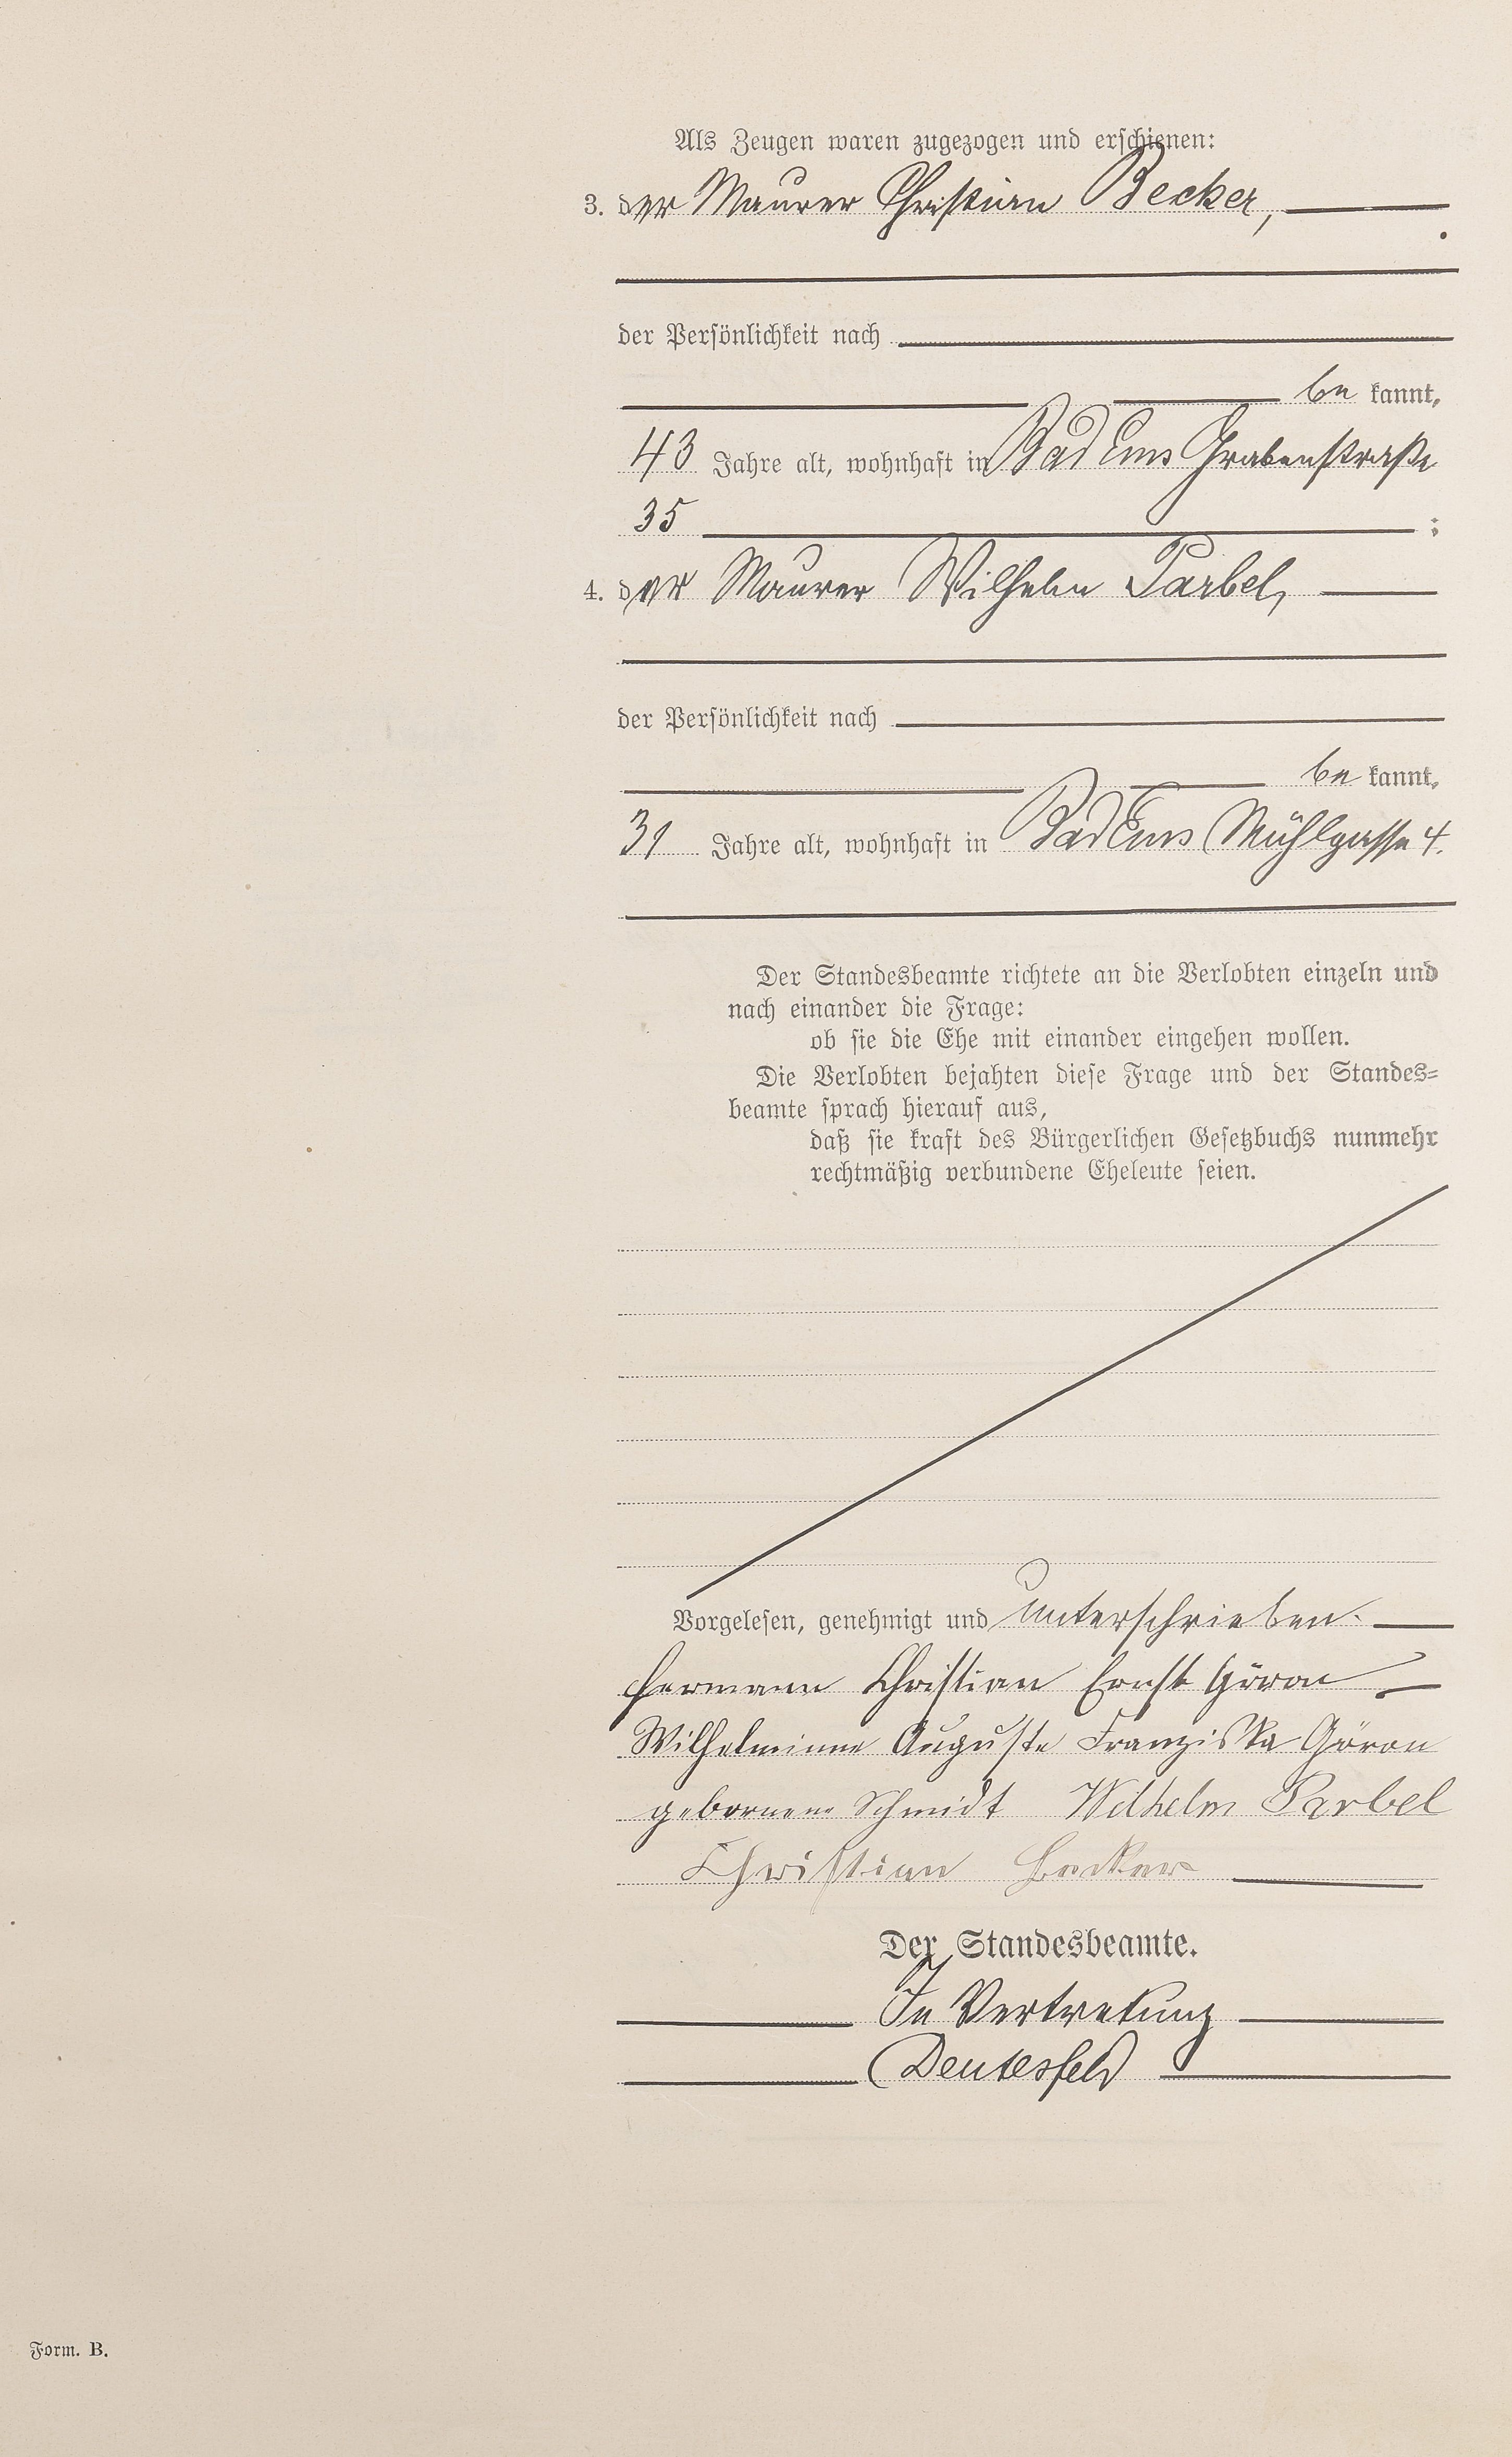 Als Zeugen waren zugezogen und erschienen:
3. der Maurer Christian Becker,
der Persönlichkeit nach
be kannt,
43 Jahre alt, wohnhaft in Bad Ems Grabenstraße
35 ;
4. der Maurer Wilhelm Parbel,
der Persönlichkeit nach
be kannt,
31 Jahre alt, wohnhaft in Bad Ems Mühlgasse 4.
Der Standesbeamte richtete an die Verlobten einzeln und
nach einander die Frage:
ob sie die Ehe mit einander eingehen wollen.
Die Verlobten bejahten diese Frage und der Standes-
beamte sprach hierauf aus,
daß sie kraft des Bürgerlichen Gesetzbuchs nunmehr
rechtmäßig verbundene Eheleute seien.
Vorgelesen, genehmigt und unterschrieben.
Hermann Christian Ernst Göron
Wilhelmine Auguste Franziska Göron
geborene Schmidt Wilhelm Parbel
Christian Becker
Der Standesbeamte.
In Vertretung
Deutesfeld
Form. B.